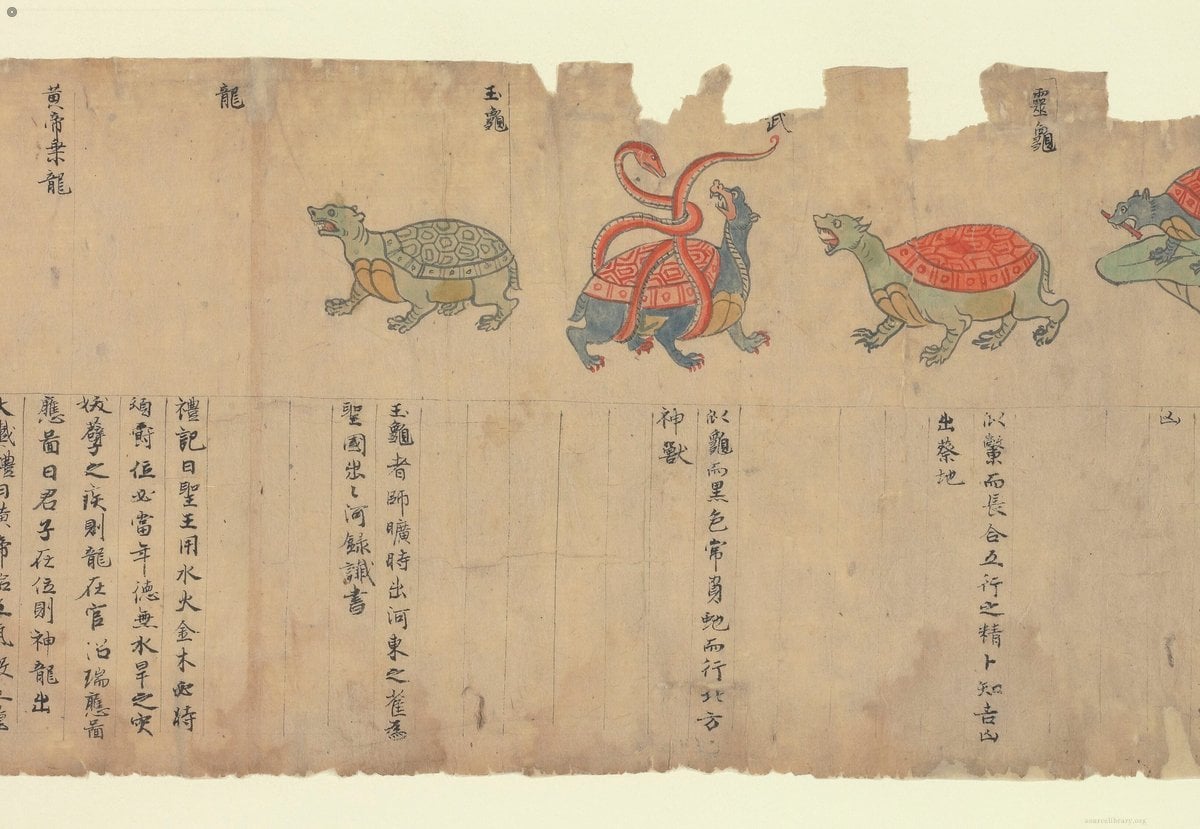 靈龜
凶
似鱉而長合五行之精卜知吉凶
出蔡地
武
似龜而黑色常負虵而行北方
神獸
玉龜
玉龜者師曠時出河東之
聖國出〻河錄讖書
龍
禮記曰聖王用水火金木必時
頒爵位必當年德無水旱之
之疾則龍在官沼瑞應圖
應圖曰君子在位則神龍出
黄帝乗龍
大戴禮曰黄帝
sourcelibrary.org